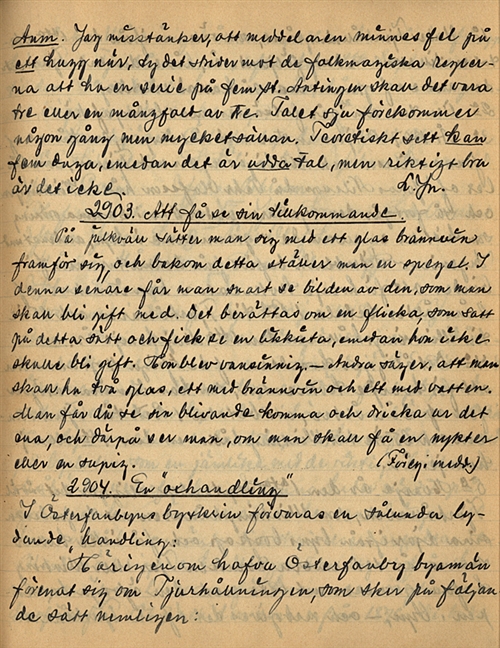 Anm. Jag misstänker, att meddelaren minnes fel på
ett hugg när, ty det strider mot de folkmagiska regler-
na att ha en serie på fem st. Antingen skall det vara
tre eller en mångfald av tre. Talet sju förekommer
någon gång men mycket sällan. Teoretiskt sett kan
fem duga, emedan det är udda tal, men riktigt bra
är det icke.
2903. Att få se sin tillkommande.
På julkväll sätter man sig med ett glas brännvin
framför sig, och bakom detta ställer man en spegel. I
denna senare får man snart se bilden av den, som man
skall bli gift med. Det berättas om en flicka, som satt
på detta sätt och fick se en likkista, emedan hon icke
skulle bli gift. Hon blev vansinnig. – Andra säger, att man
skall ha två glas, ett med brännvin och ett med vatten.
Man får då se sin blivande komma och dricka ur det
ena, och därpå ser man, om man skall få en nykter
eller en supig. (Föreg. medd.)
2904. En "oxhandling"
I Österfanbyns byskrin förvaras en sålunda ly-
dande handling:
"Häringenom hafva Österfanby byamän
förenat sig om Tjurhållningen, som sker på följan
de sätt nemligen: